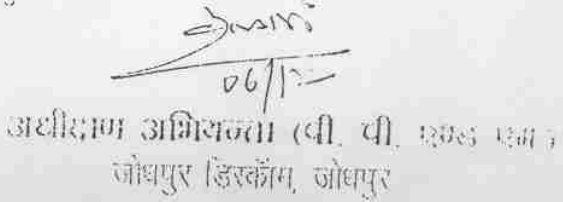 06/12
अधीक्षण अभियन्ता (पी. पी. एण्ड एम
जोधपुर डिस्कॉम, जोधपुर